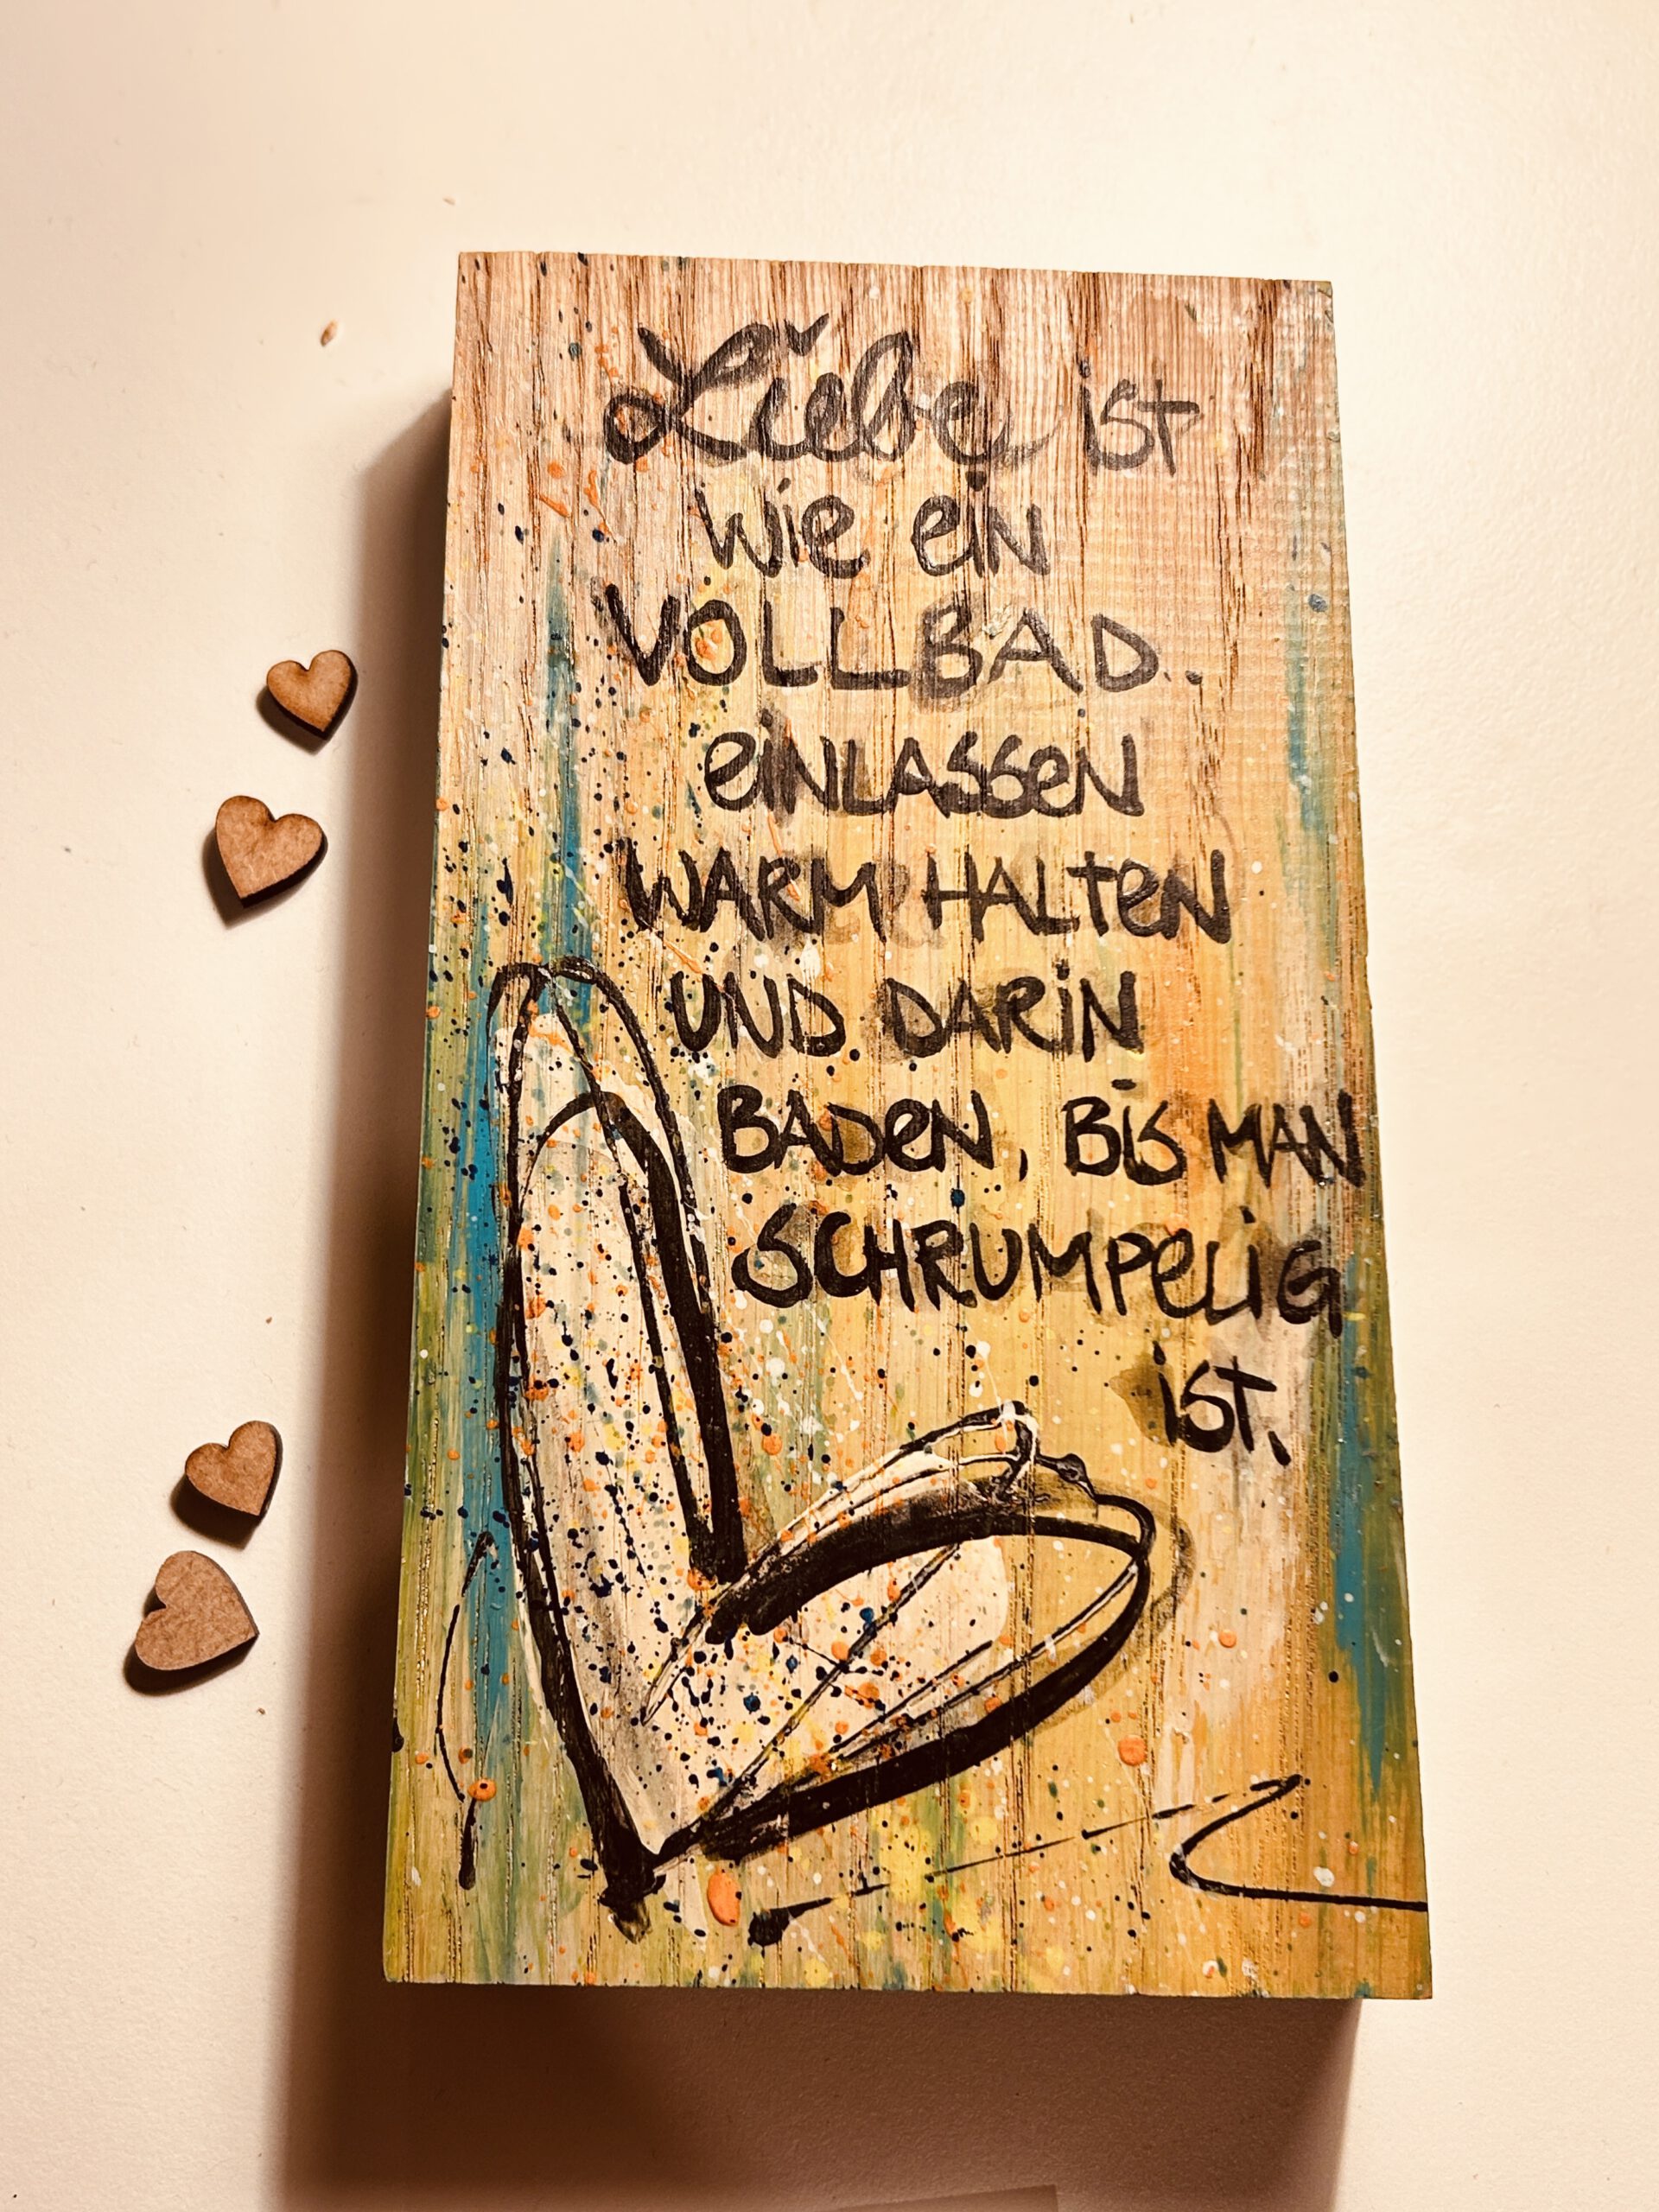 Liebe ist
wie ein
VOLLBAD..
eiNLASSeN
WARM HALTeN
UND DARiN
BADeN, BiS MAN
SCHRUMPeLiG
iST.